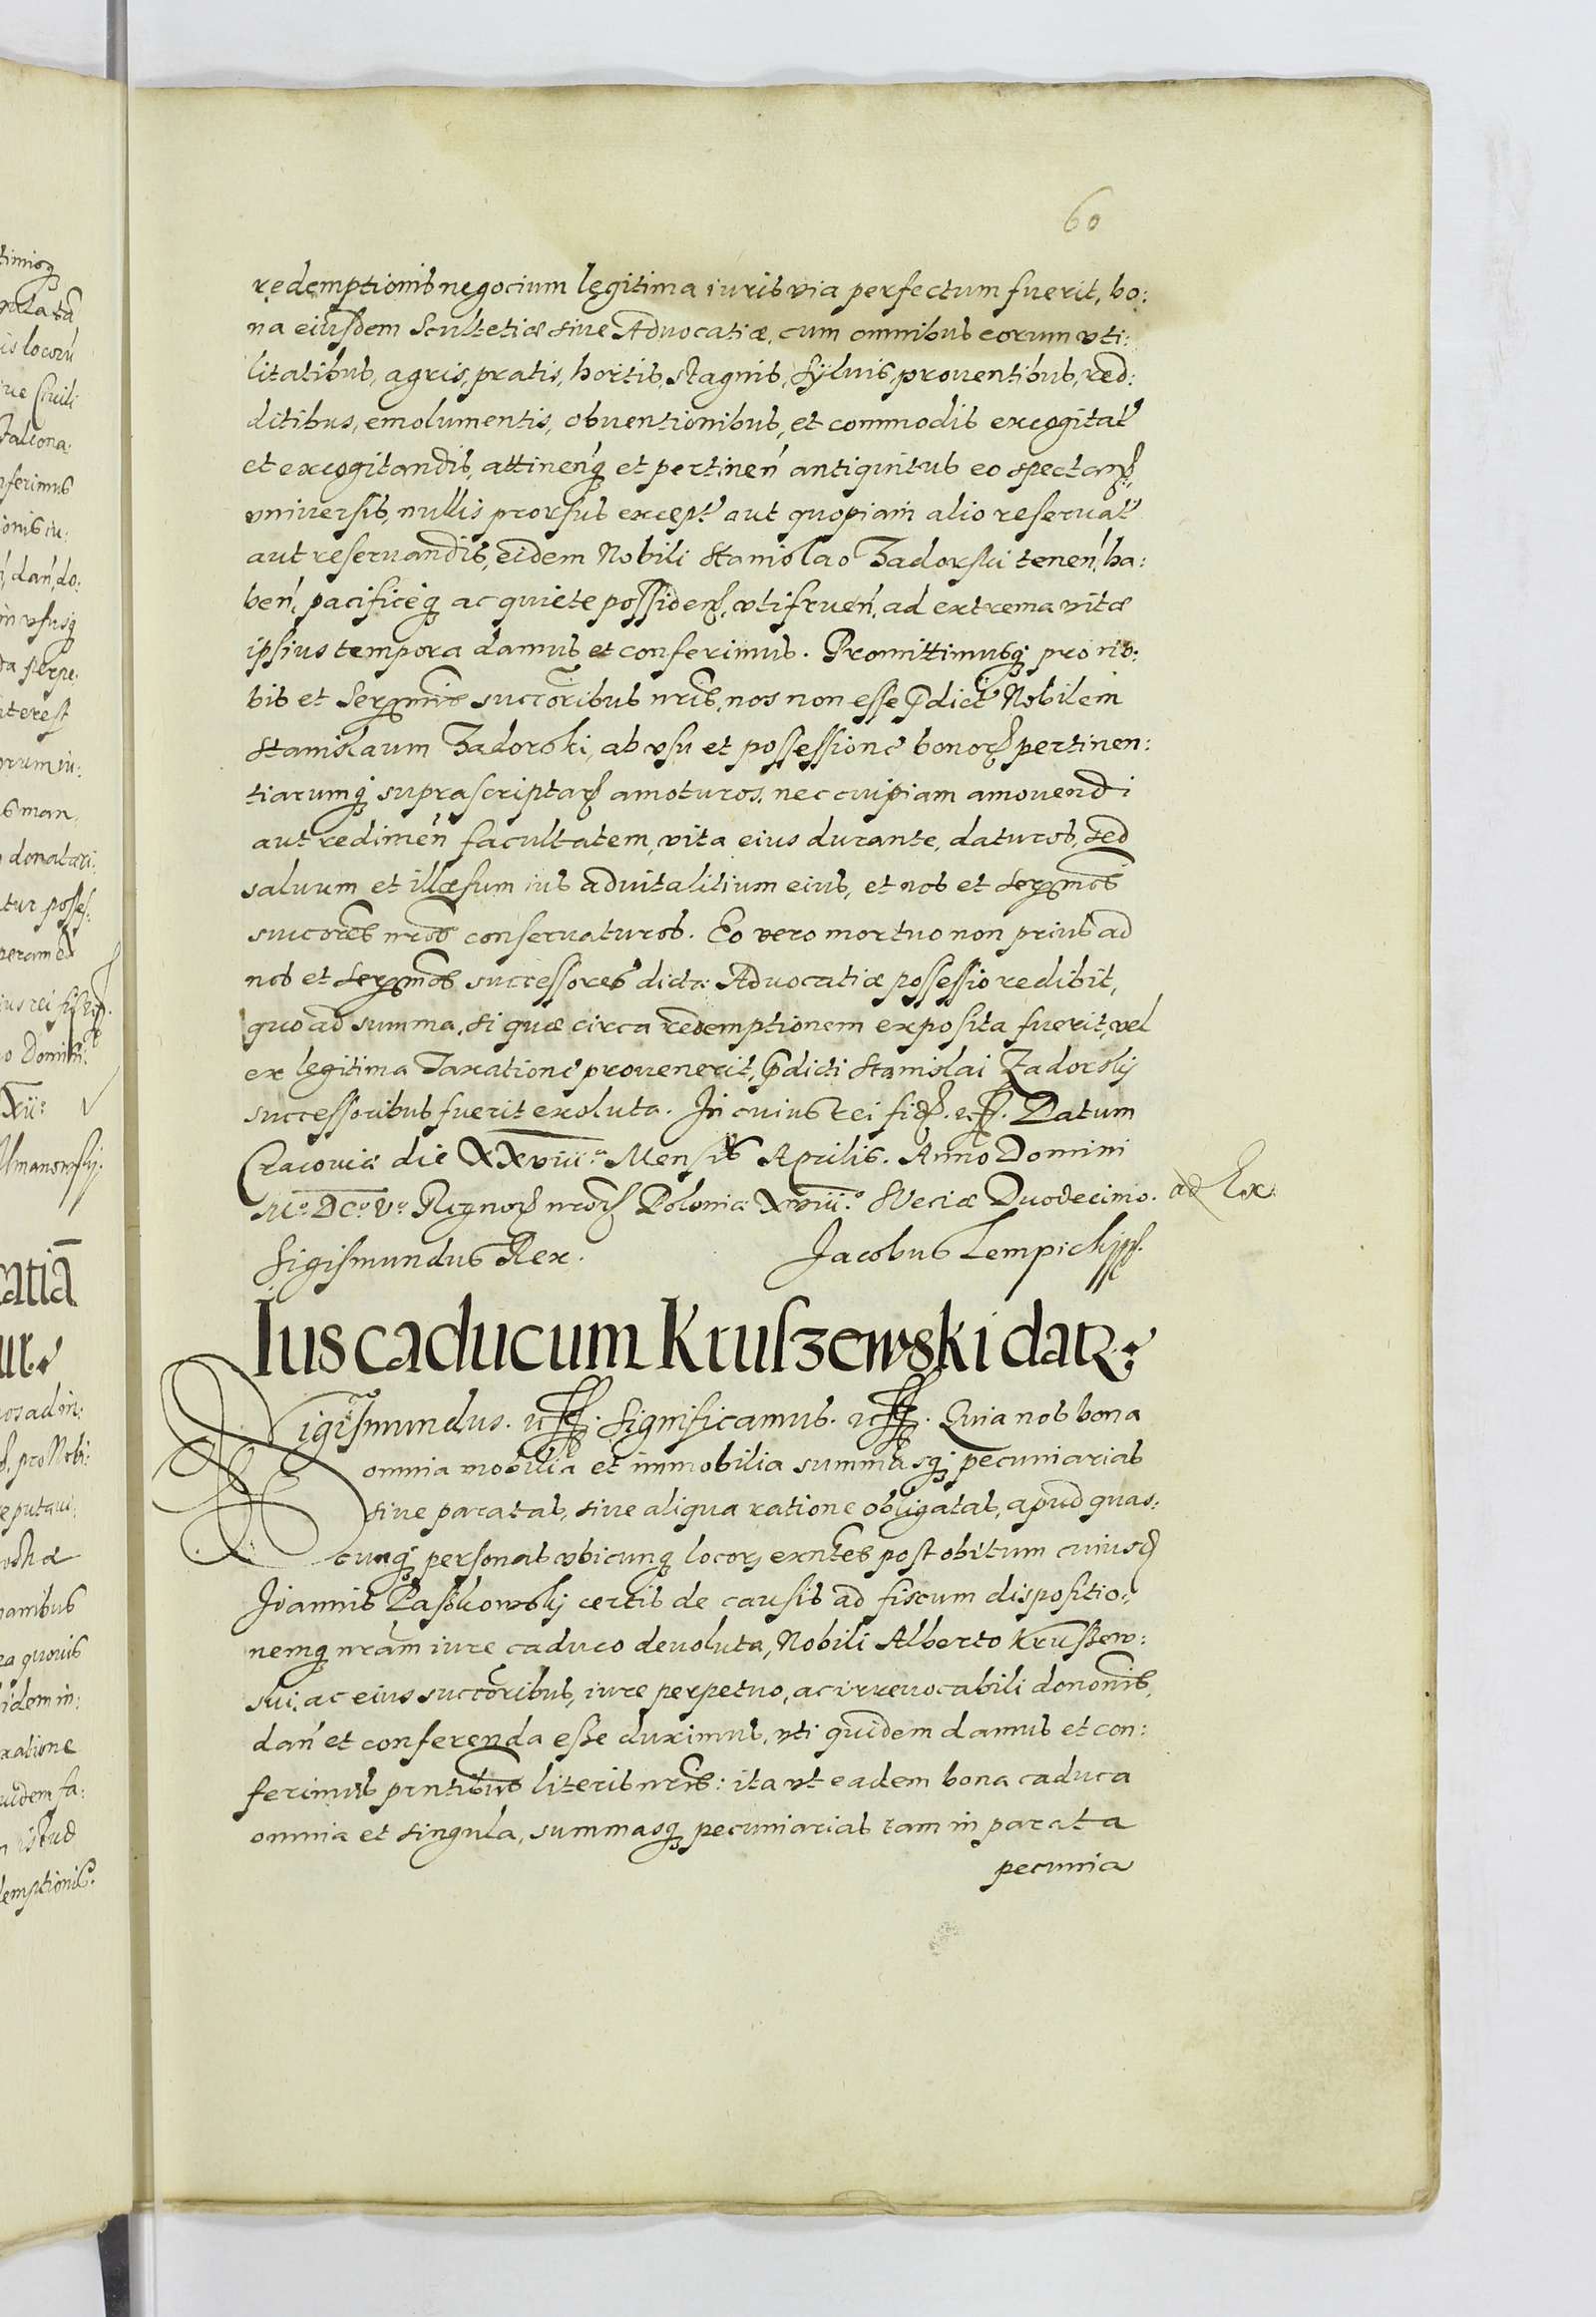 60
redemptionis negocium legitima iuris via perfectum fuerit, bo:
na eiusdem Scultetiæ siue Aduocatiæ, cum omnibus eorum vti:
litatibus, agris, pratis, hortis, stagnis, syluis, prouentibus, red:
ditibus, emolumentis, obuentionibus, et commodis excogitat
et excogitandis, attinen̄q̨ et pertinen̄ antiquitus eo spectan̄,
vniuersis, nullis prorsus except aut quopiam alio reseruat
aut reseruandis, eidem Nobili Stanislao Zadorski tenen̄, ha:
ben̄, pacificeq̨ ac quiete possiden̄, vtifruen̄, ad extrema vitæ
ipsius tempora damus et conferimus. Promittimusq̨ pro no:
bis et Sermis succribus nris, nos non esse p̄dict Nobilem
Stanislaum Zadorski, ab vsu et possessione bonoꝝ pertinen:
tiarumq̨ suprascriptaꝝ amoturos, nec cuipiam amouendi
aut redimen̄ facultatem, vita eius durante, daturos, sed
saluum et illæsum ius aduitalitium eius, et nos et sermos
succores nros conseruaturos. Eo vero mortuo non prius ad
nos et sermos successores dicta Aduocatiæ possessio redibit,
quo ad summa, si quæ circa redemptionem exposita fuerit, vel
ex legitima Taxatione prouenerit, p̄dicti Stanislai Zadorskij
successoribus fuerit exoluta. In cuius rei fid. etc. Datum
Cracouiæ die XXviii.ᵃ Mensis Aprilis. Anno Domini
M.º DC.º V.º Regnoꝝ nroꝝ Poloniæ Xviii.º Sveciæ Duodecimo. ad Ex.
Sigismundus Rex. Jacobus Lempickj ppa.
Ius caducum Kruszewski datꝛ.
Sigismundus. etc. Significamus. etc. Quia nos bona
omnia mobilia et immobilia summasq̨ pecuniarias
siue paratas, siue aliqua ratione obligatas, apud quas:
cunq̨ personas vbicunq̨ locoꝝ exntes post obitum cuiusd
Joannis Paskowskj certis de causis ad fiscum dispositio:
nemq̨ nram iure caduco deuoluta, Nobili Alberto Krussew:
ski, ac eius succoribus, iure perpetuo, ac irreuocabili dononis,
dan̄ et conferenda esse duximus, vti quidem damus et con:
ferimus prntibus literis nris: ita vt eadem bona caduca
omnia et singula, summasq̨ pecuniarias tam in parata
pecunia